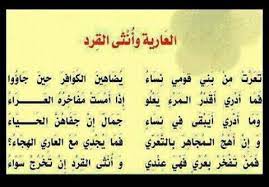 العارية وأُنثى القِرد
تعرّت مِن بَني قومي نساءٌ يُضاهين الكَوافر حين جاؤوا
فما أدري أقدرُ المرءِ يَعلو إذا أمسَت مفاخرُه العراء
وَما أدري أيَبقى في نساءٍ جمالٌ إن جفاهُنّ الحَياء
و إنْ أهجُ المجاهر بالتعري فمَا يُجدي مَع العاري الهجاء؟
فمَن تفخر بعُري فهيَ عندي و أنثى القِردِ إن تخرُج سواء